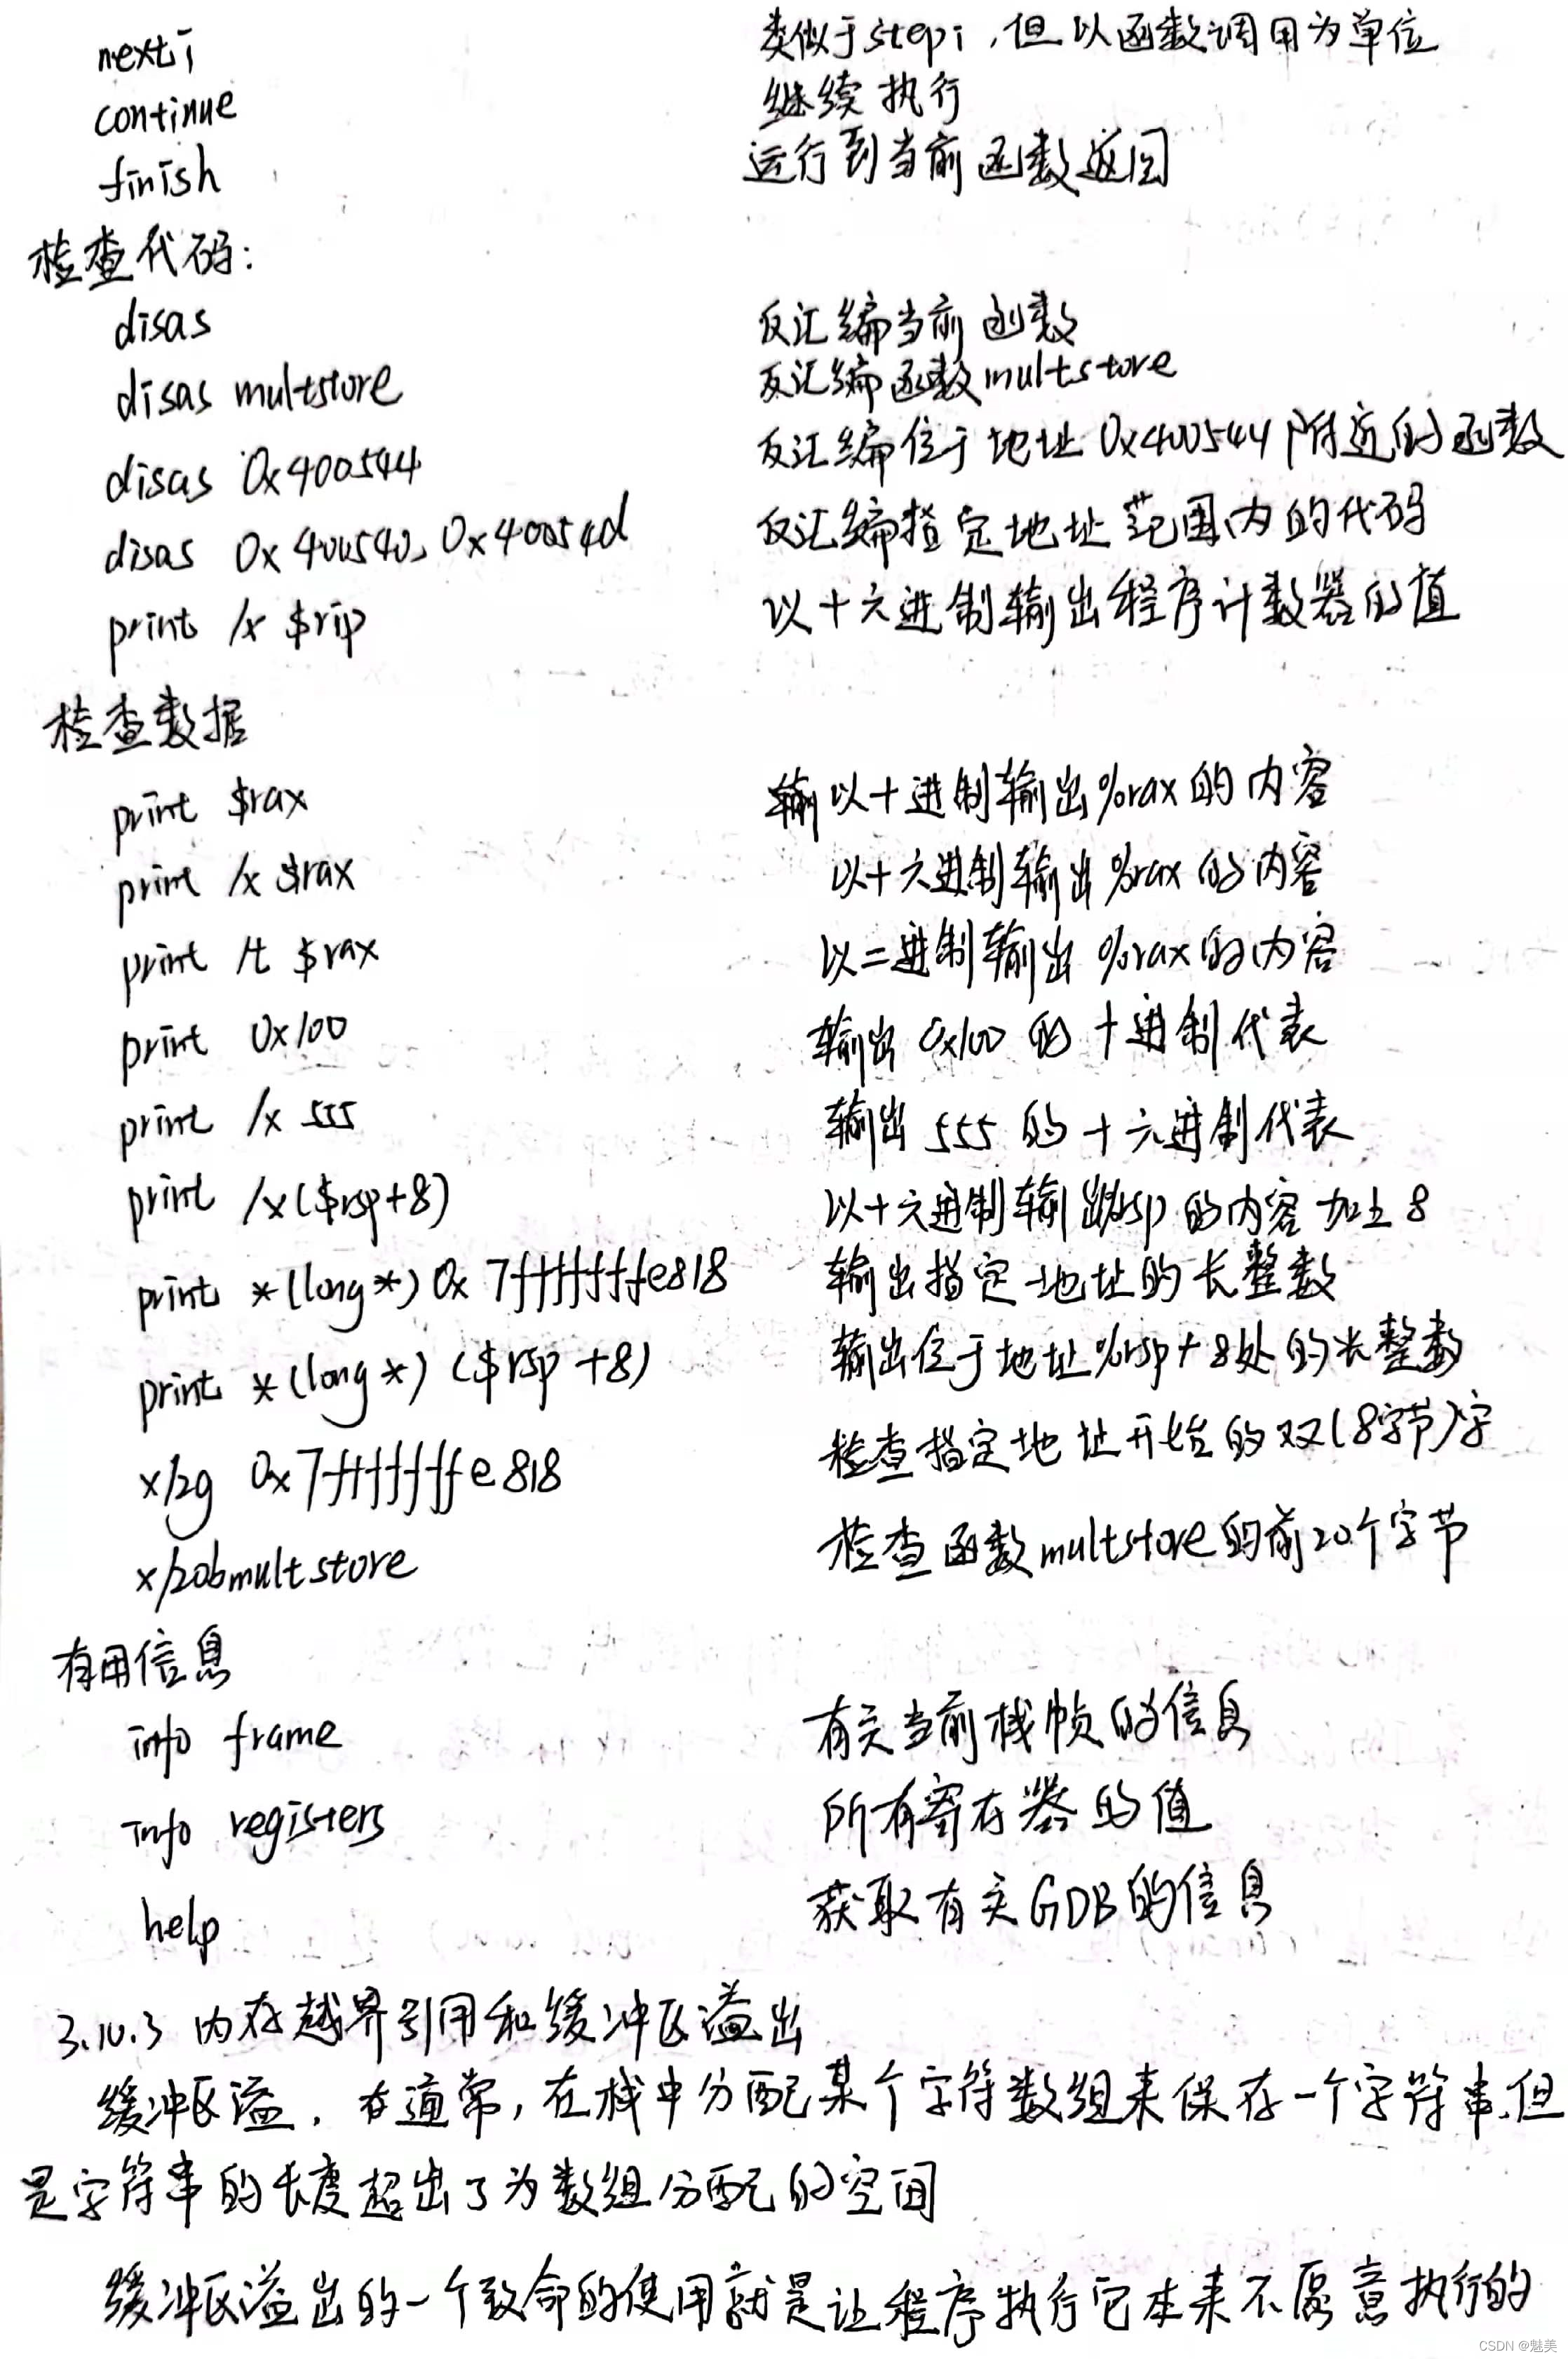 nexti 类似于stepi,但以函数调用为单位
continue 继续执行
finish 运行到当前函数返回
检查代码:
disas 反汇编当前函数
disas multstore 反汇编函数multstore
disas 0x400544 反汇编位于地址0x400544附近的函数
disas 0x400540, 0x40054d 反汇编指定地址范围内的代码
print /x $rip 以十六进制输出程序计数器的值
检查数据
print $rax 以十进制输出%rax的内容
print /x $rax 以十六进制输出%rax的内容
print /t $rax 以二进制输出%rax的内容
print 0x100 输出0x100的十进制代表
print /x 555 输出555的十六进制代表
print /x($rsp+8) 以十六进制输出%rsp的内容加上8
print *(long*) 0x7fffffffe818 输出指定地址的长整数
print *(long*) ($rsp +8) 输出位于地址%rsp+8处的长整数
x/2g 0x7fffffffe818 检查指定地址开始的双(8字节)字
x/20bmultstore 检查函数multstore的前20个字节
有用信息
info frame 有关当前栈帧的信息
info registers 所有寄存器的值
help 获取有关GDB的信息
3.10.3 内存越界引用和缓冲区溢出
缓冲区溢,在通常,在栈中分配某个字符数组来保存一个字符串.但
是字符串的长度超出了为数组分配的空间
缓冲区溢出的一个致命的使用就是让程序执行它本来不愿意执行的
CSDN @魅美